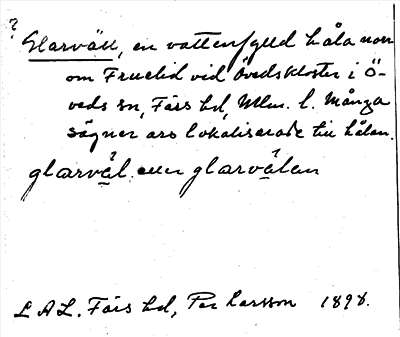 ? Glarväll, en vattenfylld håla norr
om Fruelid vid Övedskloster i Ö-
veds sn, Färs hd, Mlm. l. Många
sägner äro lokaliserade till hålan.
glarväl. eller glarvälen
L A L. Färs hd, Per Larsson 1898.